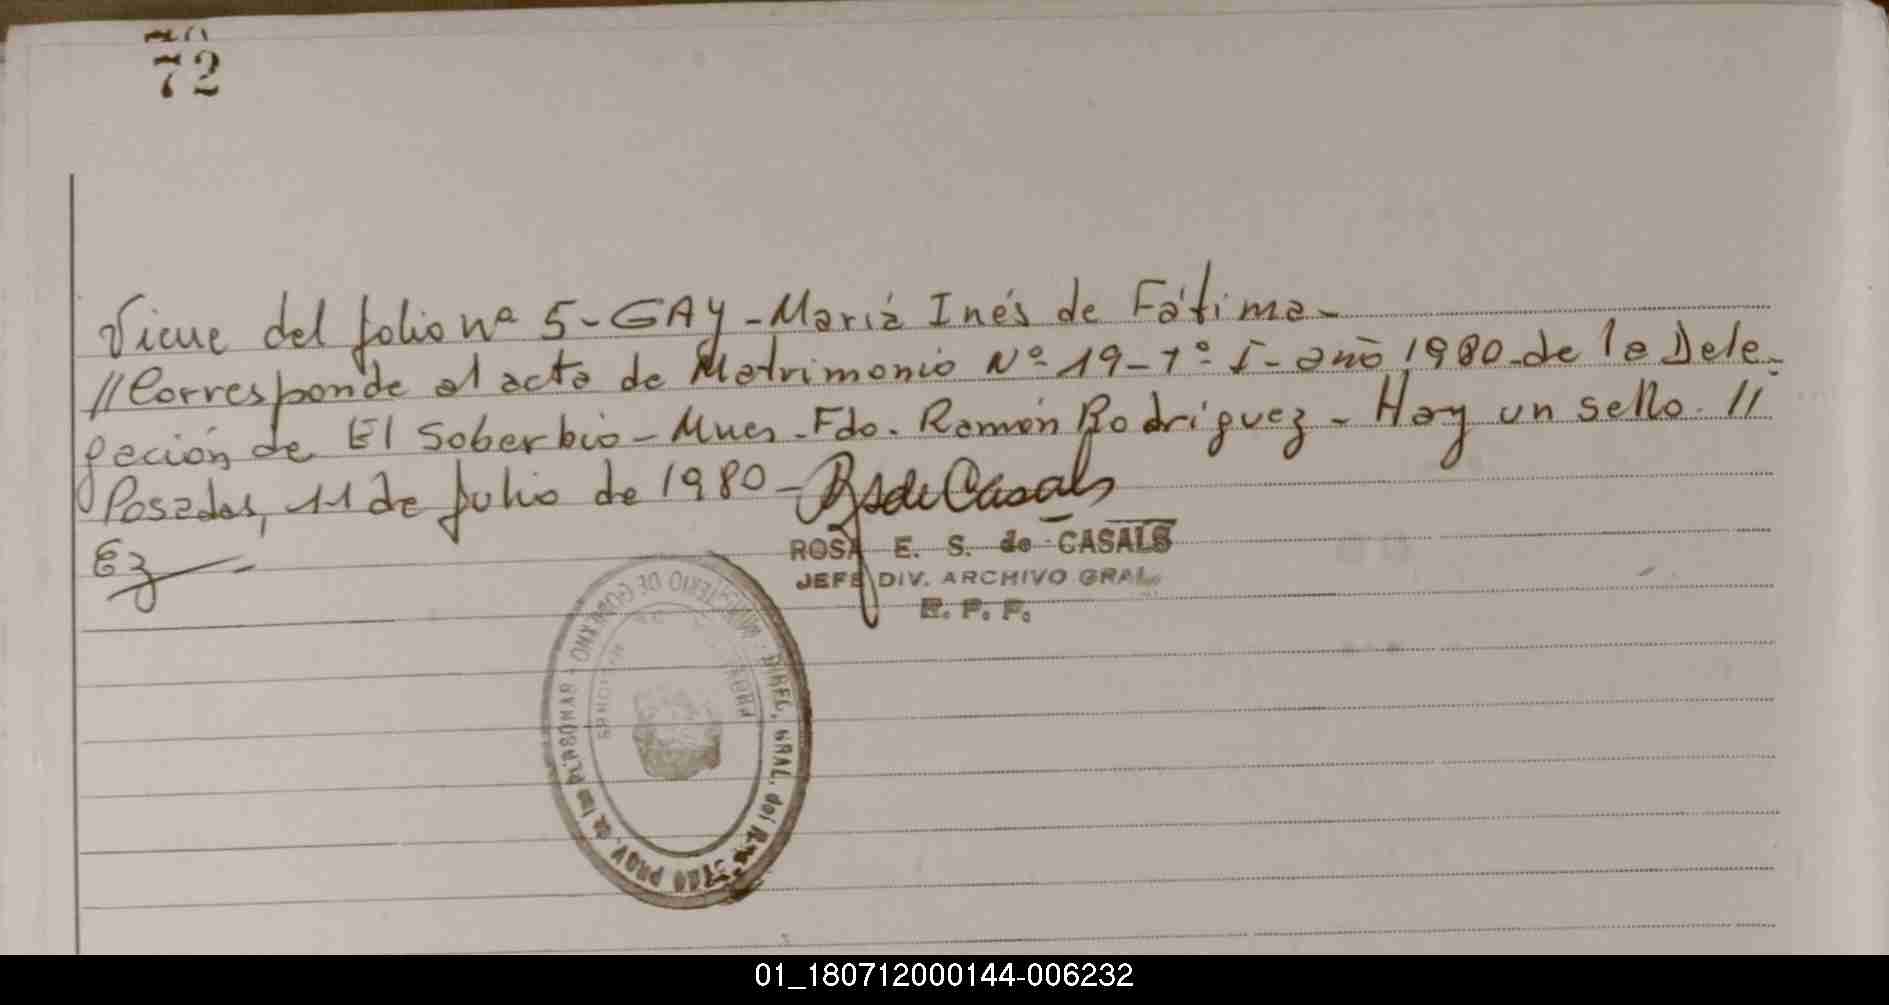 72
Viene del folio Nº 5-GAY-María Inés de Fátima-
//Corresponde al acta de Matrimonio Nº 19-Tº I-año 1980-de la Dele-
gación de El Soberbio-Mnes-Fdo. Ramón Rodriguez-Hay un sello. //
Posadas, 11 de Julio de 1980-RSdeCasals
Ez
ROSA E. S. de CASALS
JEFE DIV. ARCHIVO GRAL.
R. P. P.
MINISTERIO DE GOBIERNO
DIREC. GRAL. del
PROV. de las
MISIONES
01_180712000144-006232